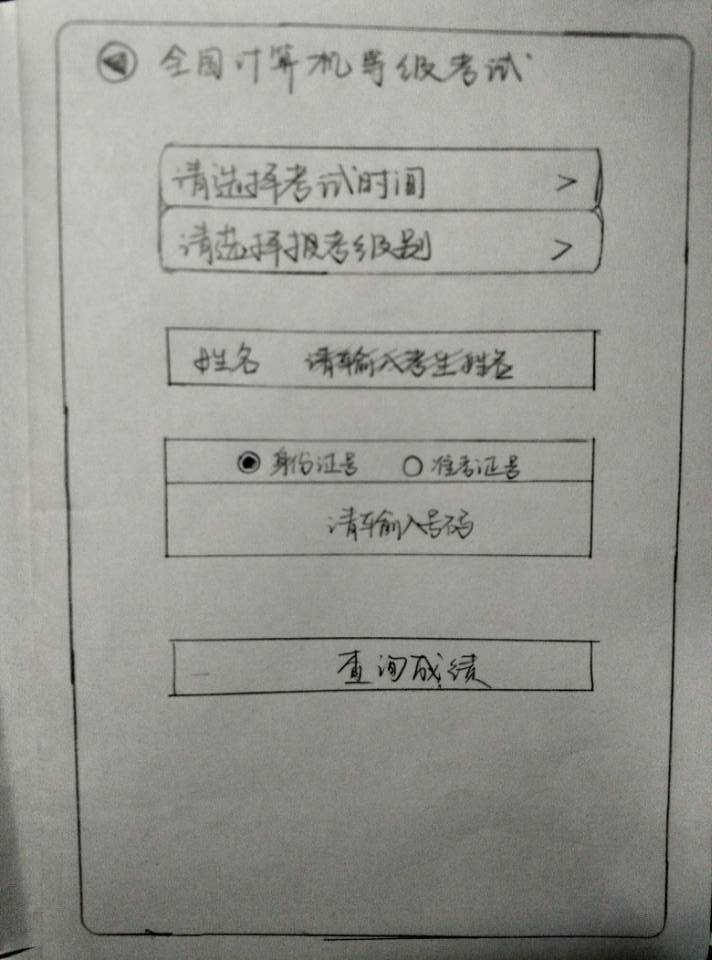 全国计算机等级考试
请选择考试时间 >
请选择报考级别 >
姓名 请输入考生姓名
身份证号 准考证号
请输入号码
查询成绩